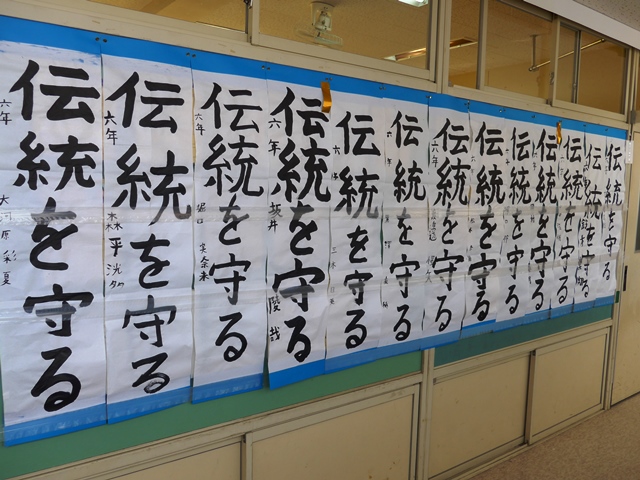 伝統を守る
六年 大河原 彩夏
伝統を守る
六年 森平 滉多
伝統を守る
六年 堀口 実奈未
伝統を守る
六年 坂井 慶哉
伝統を守る
伝統を守る
伝統を守る
六年
伝統を守る
伝統を守る
伝統を守る
伝統を守る
伝統を守る
伝統を守る